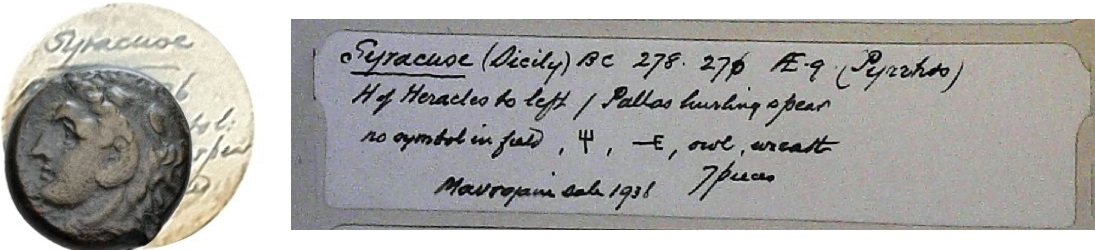 Syracuse
Syracuse (Sicily) BC 278. 276 Æ.9 (Pyrrhos)
H of Heracles to left / Pallas hurling spear
no symbol in field, Ψ, –E, owl, wreath
7 pieces
sale 1938